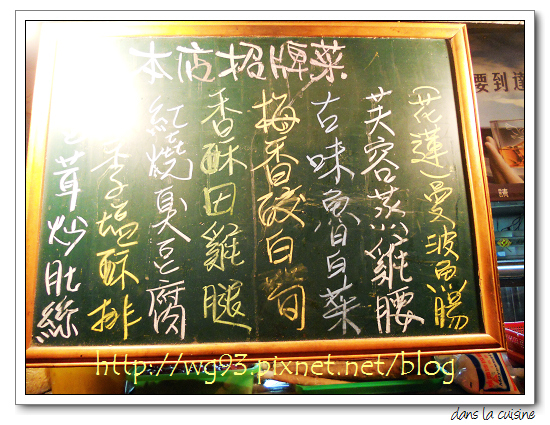 本店招牌菜
(花蓮)曼波魚腸
芙容蒸雞腰
古味魯白菜
梅香皎白筍
香酥田雞腿
紅燒臭豆腐
李塩酥排
茸炒肚絲
要到達
請
http://wg93.pixnet.net/blog
dans la cuisine